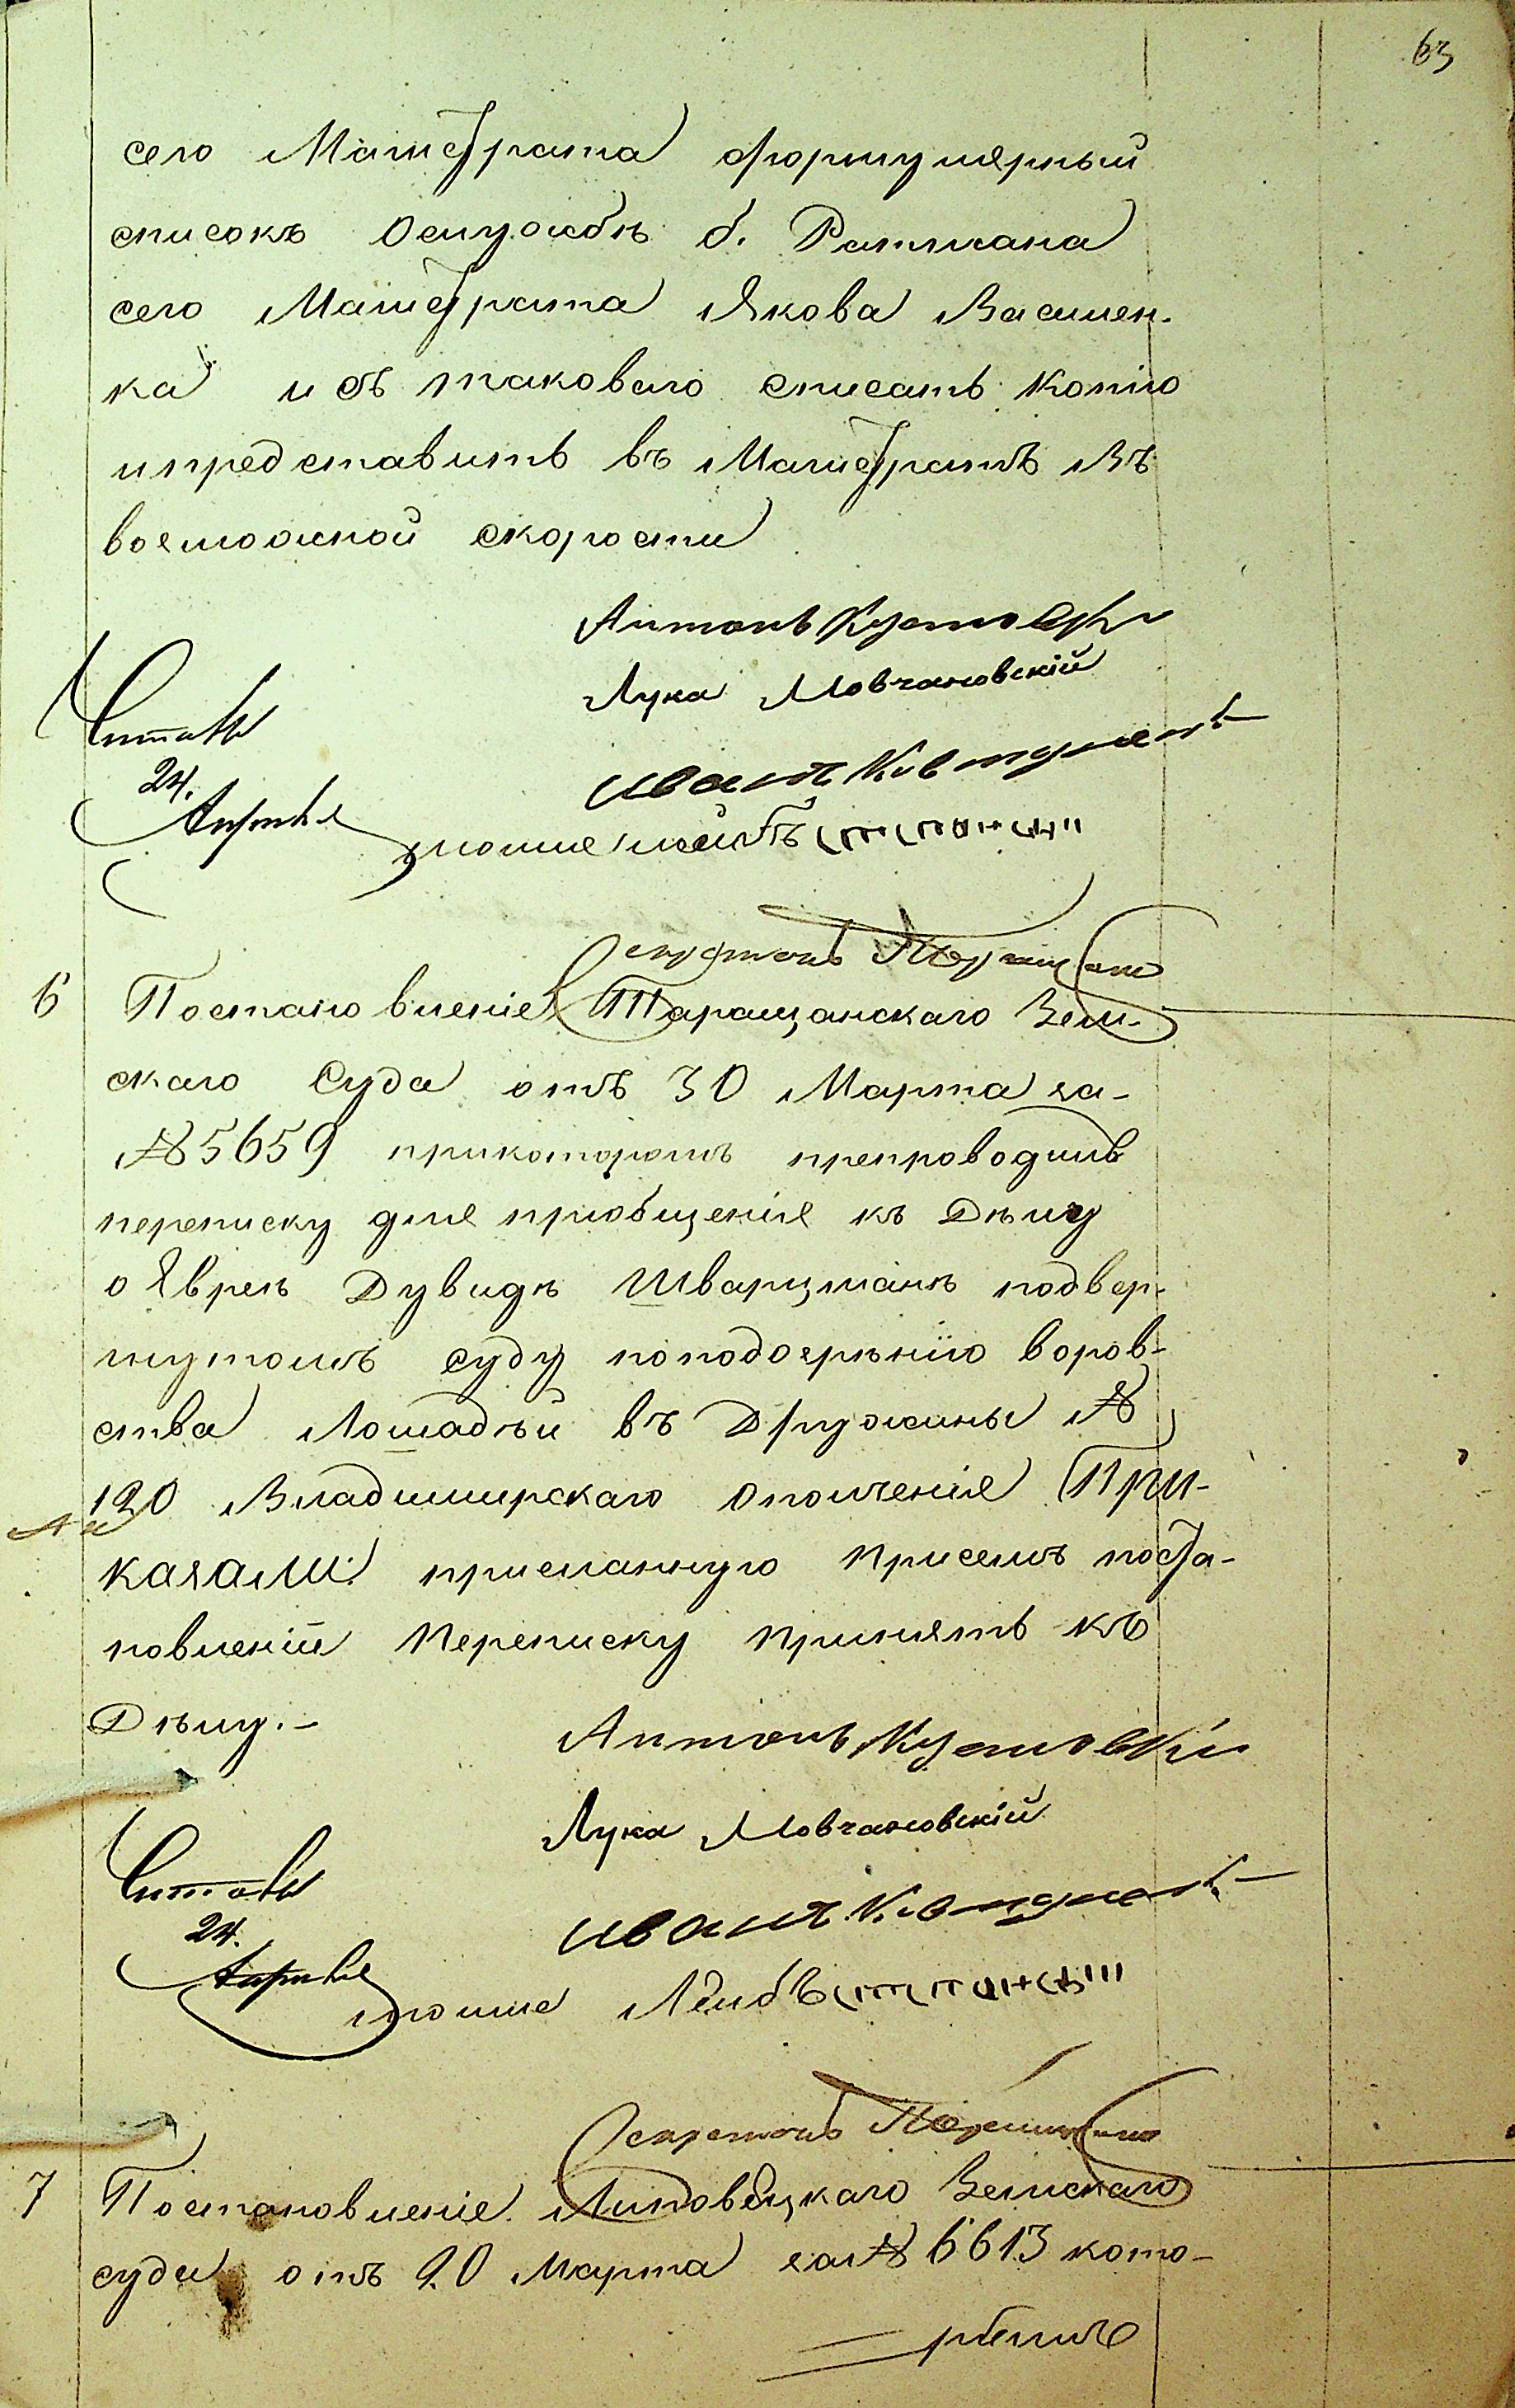 63
сего Магистрата формулярный
списокъ ослужбѣ б. Ратмана
сего Магистрата Якова Василен-
ка и съ таковаго списать копію
ипредставить въ Магистратъ въ
возможной скорости
Антонъ Кустовскі
Лука Мовчановскій
Иванъ
Читалъ
24.
Апрѣля
мошко лейбъ
Секретарь
6 Постановленіе Таращанскаго Зем-
скаго Суда отъ 30 Марта за-
№ 5659 прикоторомъ препроводивъ
переписку для пріобщенія къ Дѣлу
о Евреѣ Дувидѣ Шварцманѣ подвер-
гнутомъ суду поподозрѣнію воров-
ства Лошадѣй въ Дружины №
120 Владимирскаго ополченія При-
казали: присланную присемъ поста-
новленіи переписку принять къ
Дѣлу.-
Антонъ Кустовскі
Лука Мовчановскій
Иванъ
Читалъ
24.
Апрѣля
мошко Лейбъ
Секретарь
7 Постановленіе Липовецкаго Земскаго
суда отъ 20 Марта за № 6613 кото-
рымъ